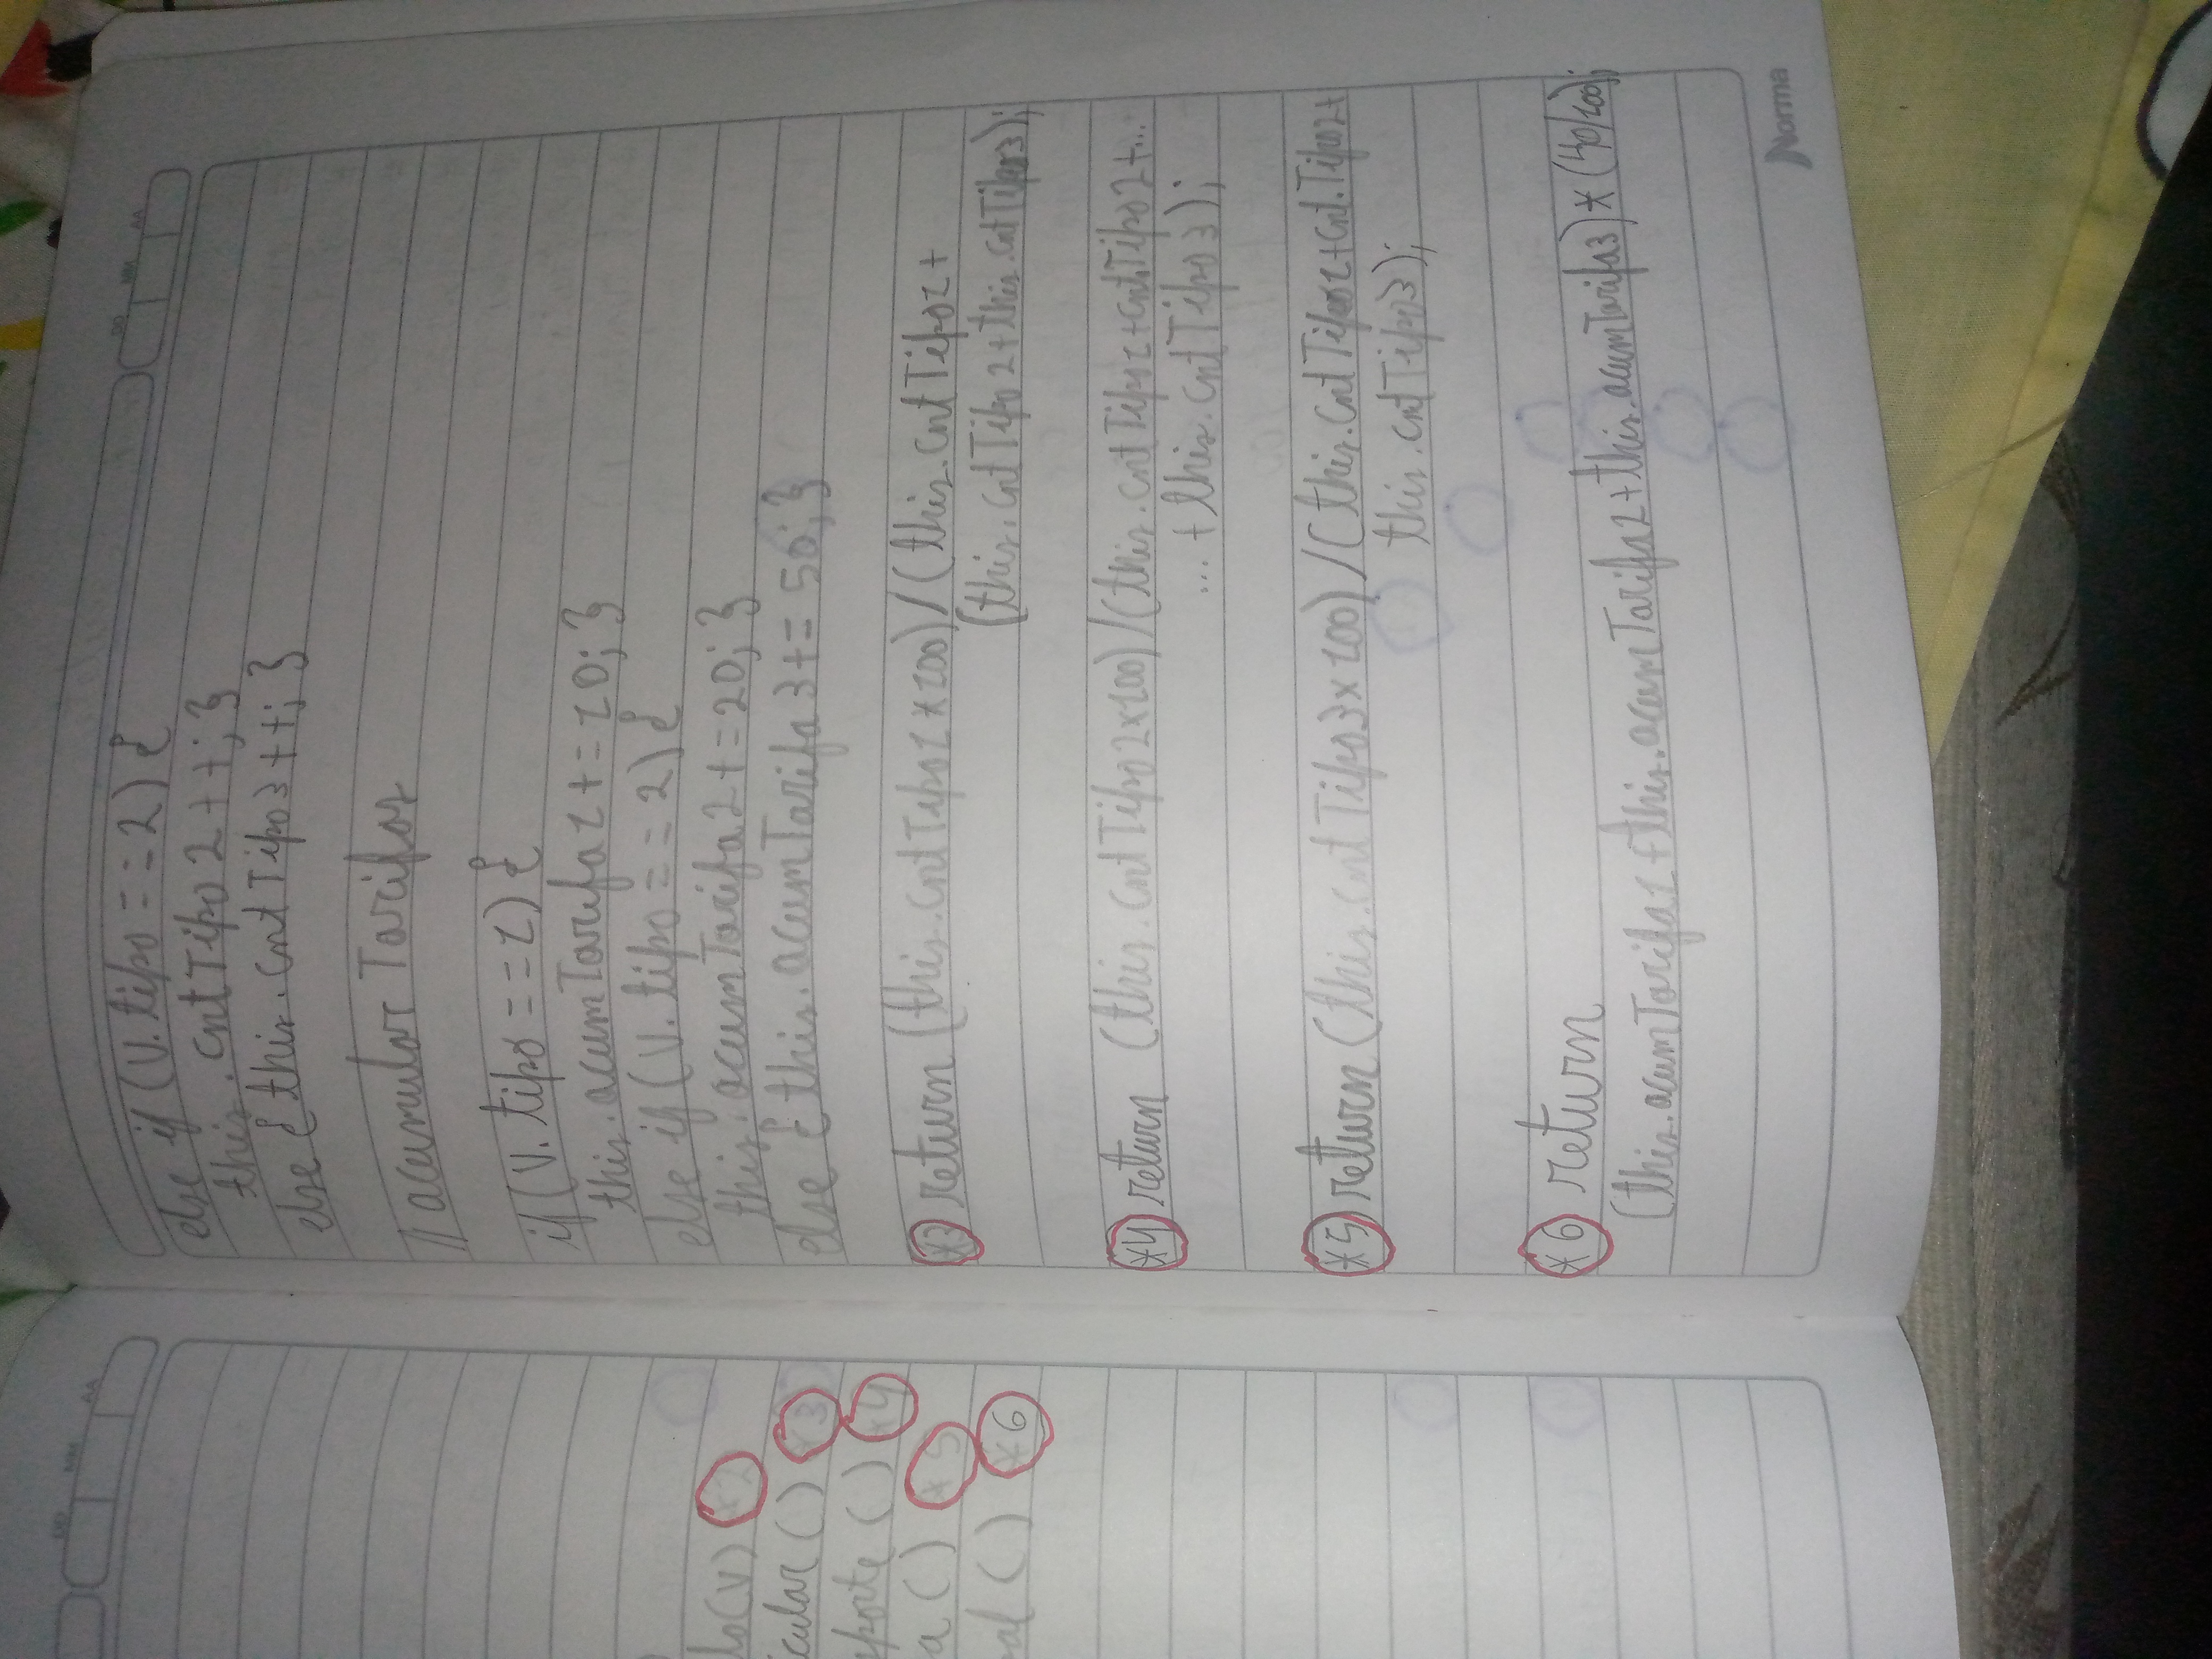 DD MM AA
else if (v.tipo == 2) {
this.cntTipo2++;}
else { this.cntTipo3++;}
// acumular Tarifas
if (v.tipo == 1) {
this.acumTarifa1+=10;}
else if (v.tipo == 2) {
this.acumTarifa2+=20;}
else { this.acumTarifa3+=50;}
*3 return (this.cntTipo1*100)/(this.cntTipo1+
(this.cntTipo2+this.cntTipo3);
*4 return (this.cntTipo2x100)/(this.cntTipo1+cntTipo2+...
...+this.cntTipo3);
*5 return (this.cntTipo3x100)/(this.cntTipo1+cnt.Tipo2+
this.cntTipo3);
*6 return
(this.acumTarifa1+this.acumTarifa2+this.acumTarifa3)*(40/100);
Norma
DD MM AA
lo(v) *2
icular() *3
sporte() *4
a() *5
al() *6